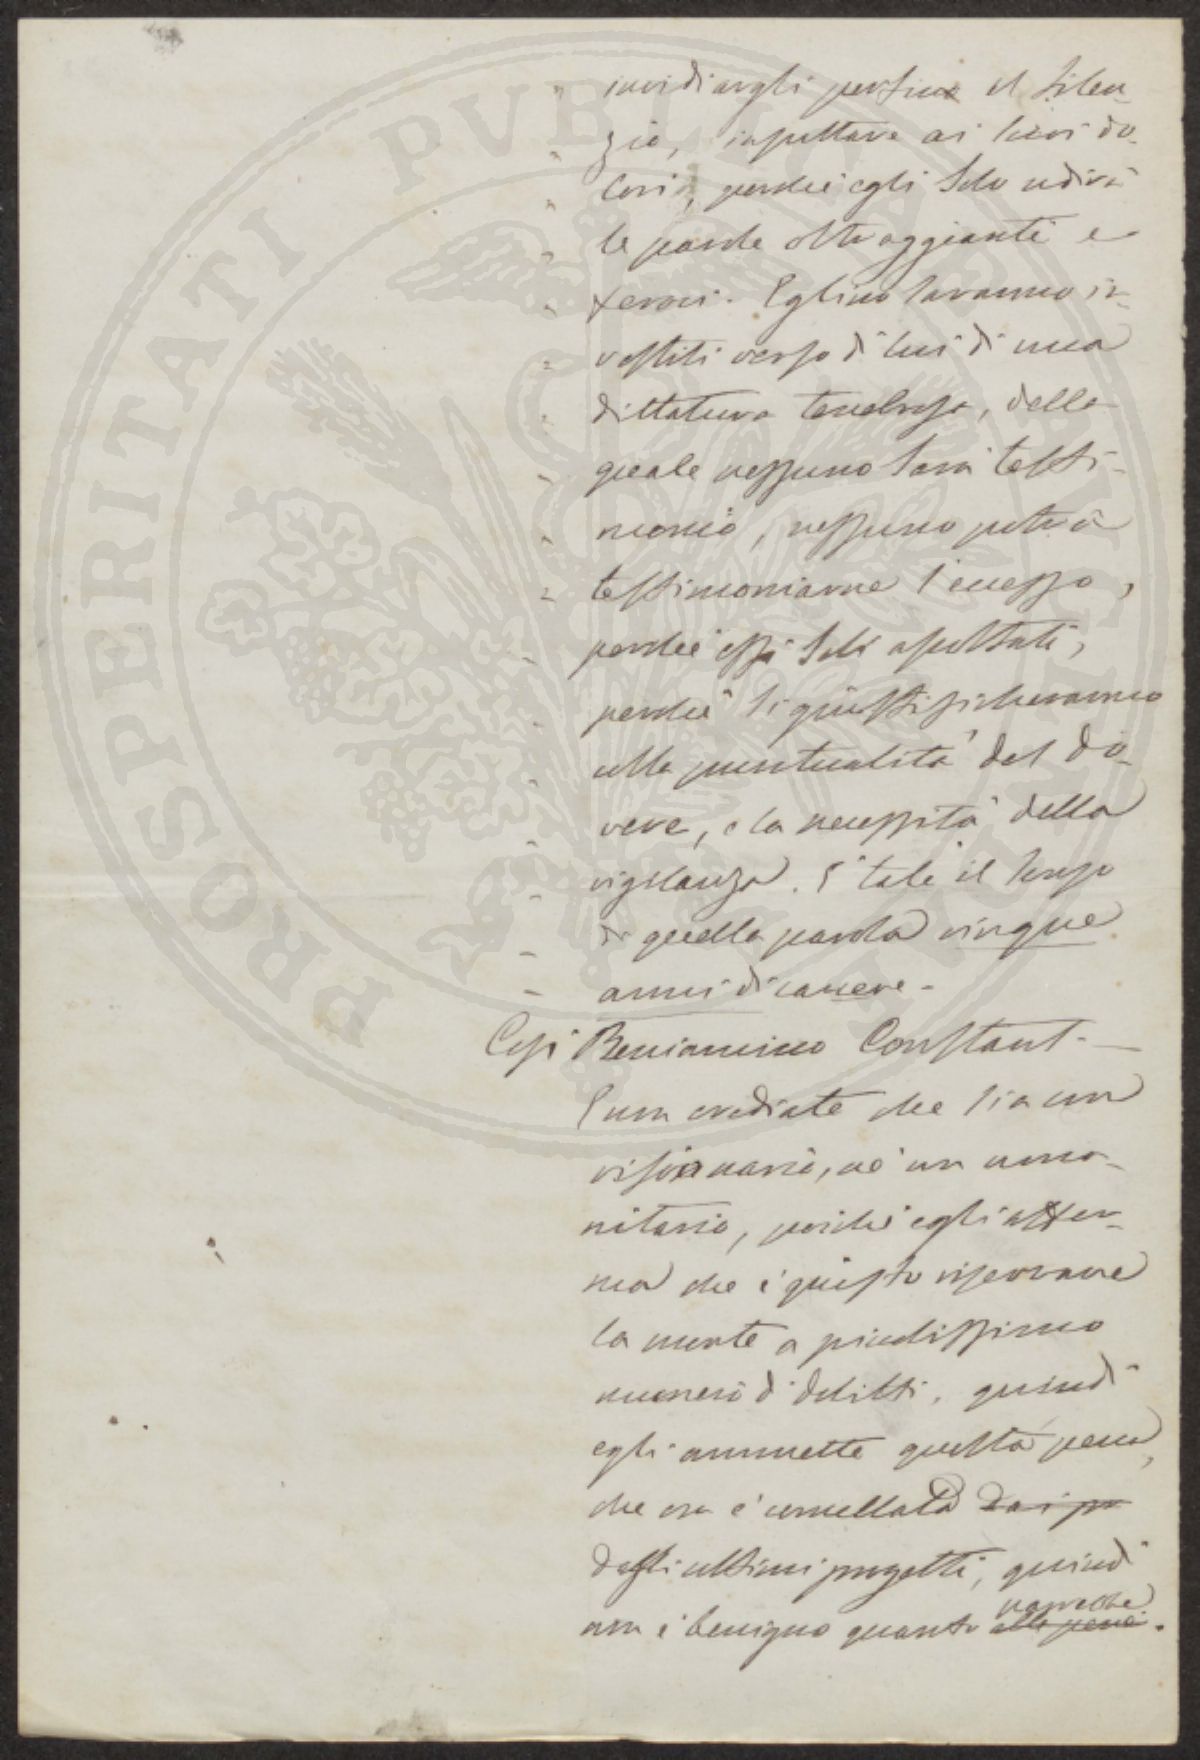 " invidiargli perfino il silen-
" zio, insultare ai suoi do-
" lori, perché egli solo udirà
" le parole oltraggianti e
" feroci. Eglino saranno in-
" vestiti verso di lui di una
" dittatura tenebrosa, della
" quale nessuno sarà testi-
" monio, nessuno potrà
" testimoniarne l'eccesso,
" perché essi soli ascoltati,
" perché si giustificheranno
" colla puntualità del do-
" vere, e la necessità della
" vigilanza. È tale il senso
" di quella parola cinque
" anni di carcere.
Così Beniamino Constant. —
E non crediate che sia un
visionario, né un uma-
nitario, poiché egli affer-
ma che è giusto riservare
la morte a piccolissimo
numero di delitti, quindi
egli ammette questa pena,
che ora è cancellata dai pr
dagli ultimi progetti, quindi
non è benigno quanto alle pene.
vorreste
PROSPERITATI PVBLICAE